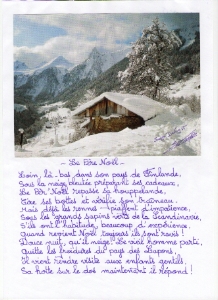 - Le Père Noël -
Loin, là-bas dans son pays de Finlande,
Sous la neige bleutée préparant ses cadeaux,
Le Pèr' Noël repasse sa houppelande,
Cire ses bottes et vérifie son traîneau.
Mais déjà les rennes piaffent d'impatience,
Sous les grands sapins verts de la Scandinavie,
S'ils ont l'habitude, beaucoup d'expérience,
Quand revient Noël toujours ils sont ravis!
Douce nuit, qu'il neige! Le vieil homme parti,
Quitte les froidures du pays des Lapons,
Il vient rendre visite aux enfants gentils,
Sa hotte sur le dos maintenant il répond!